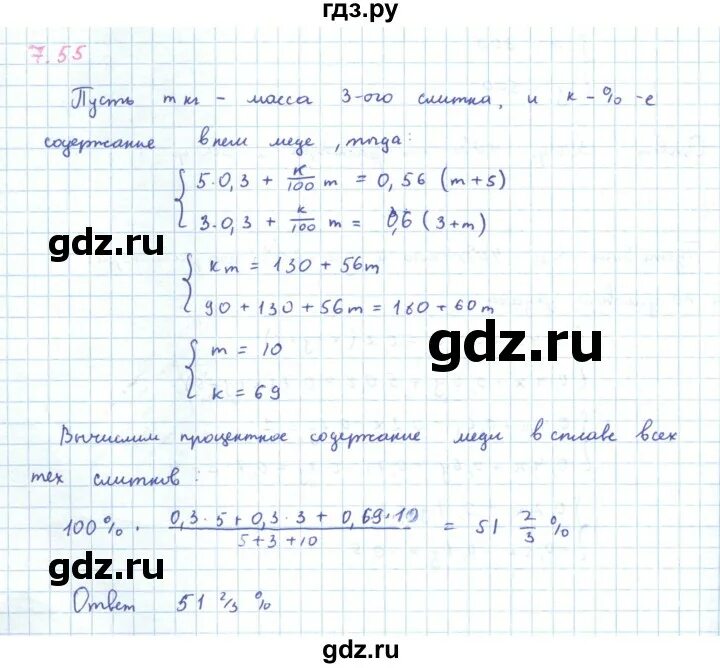 гдз.ру
7.55
Пусть m кг - масса 3-ого слитка, и к - % -е
содержание в нем меди, тогда:
5·0,3 + к/100 m = 0,56 (m+5)
3·0,3 + к/100 m = 0,6 (3+m)
gdz.ru
кm = 130 + 56m
90 + 130 + 56m = 180 + 60m
gdz.ru
m = 10
к = 69
Вычислим процентное содержание меди в сплаве всех
тех слитков:
100% · (0,3·5 + 0,3·3 + 0,69·10)/(5+3+10) = 51 2/3 %
gdz.ru
Ответ 51 2/3 %
gdz.ru